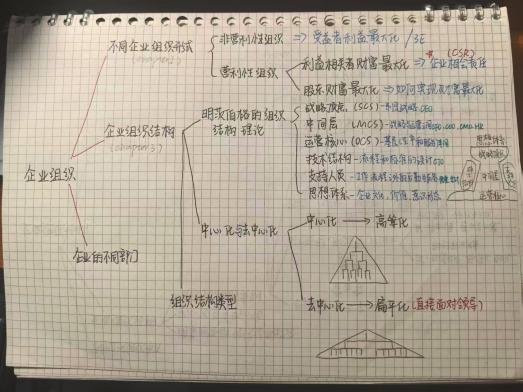 不同企业组织形式
(chapter2)
非营利性组织 ⇒ 受益者利益最大化 / 3E
营利性组织
利益相关者财富最大化 ⇒ 企业社会责任
(CSR)
股东财富最大化 ⇒ 如何实现财富最大化
企业组织
企业组织结构
(chapter3)
明茨伯格的组织
结构理论
战略顶点 (SCS) -
CEO
中间层 (MCS) -
CFO, CMO, HR
运营核心 (OCS) -
技术结构 - 流程和标准的设计
支持人员 -
思想体系 - 企业文化、价值、意识形态
思想体系
战略顶点
中间层
运营核心
中心化与去中心化
中心化 → 高耸化
去中心化 → 扁平化 (直接面对领导)
组织结构类型
企业的不同部门